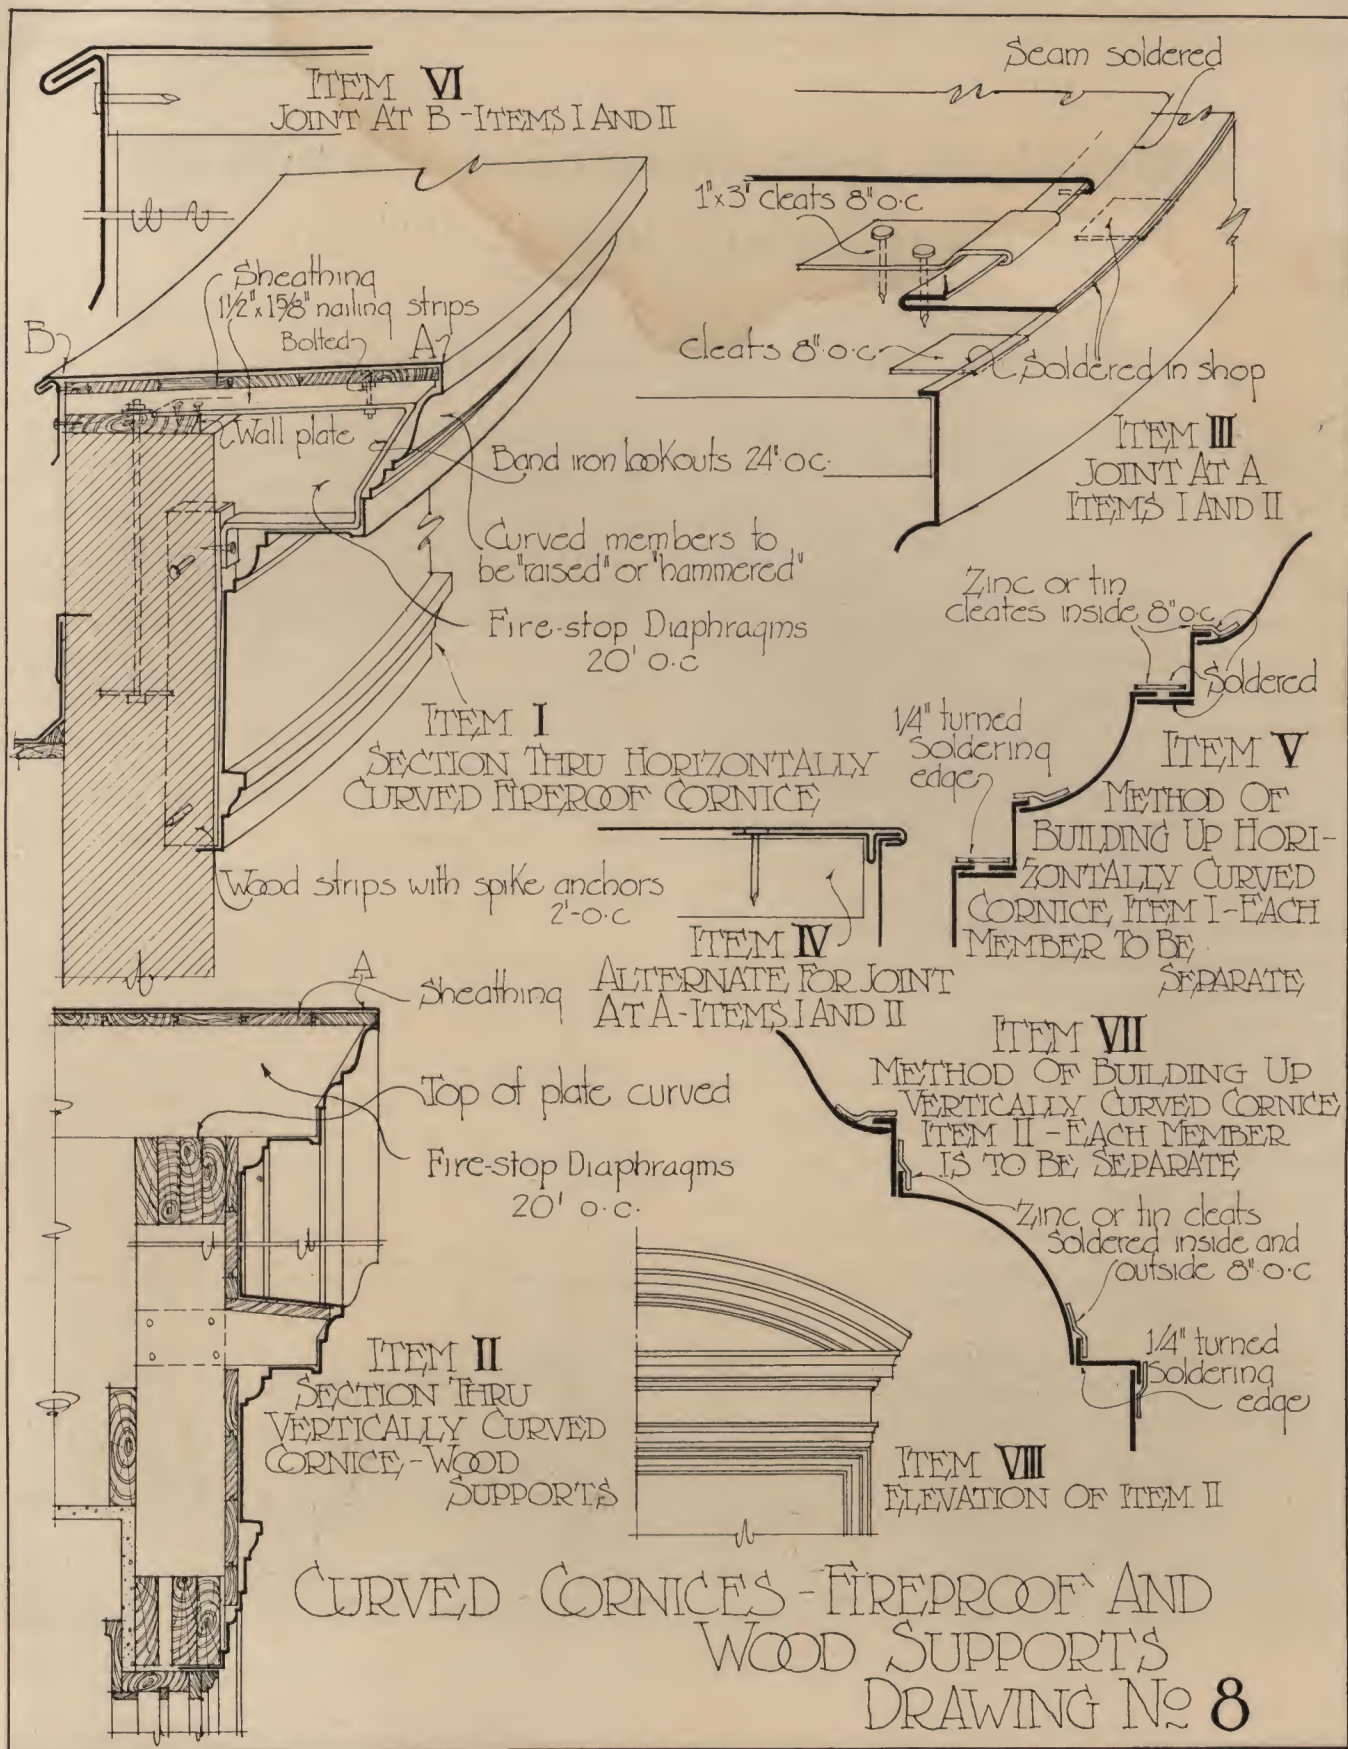 ITEM VI
JOINT AT B-ITEMS I AND II
Seam soldered
1"x3" cleats 8"o.c
Sheathing
1 1/2"x 1 5/8" nailing strips
Bolted
B
A
Wall plate
cleats 8".o.c
Soldered in shop
ITEM III
JOINT AT A
ITEMS I AND II
Band iron lookouts 24".o.c.
Curved members to
be "raised" or "hammered"
Fire-stop Diaphragms
20' o.c
ITEM I
SECTION THRU HORIZONTALLY
CURVED FIREROOF CORNICE
Wood strips with spike anchors
2'-o.c
Zinc or tin
cleates inside 8"o.c
Soldered
1/4" turned
Soldering
edge
ITEM V
METHOD OF
BUILDING UP HORI-
ZONTALLY CURVED
CORNICE, ITEM I-EACH
MEMBER TO BE
SEPARATE
ITEM IV
ALTERNATE FOR JOINT
AT A-ITEMS I AND II
A
Sheathing
Top of plate curved
Fire-stop Diaphragms
20' o.c.
ITEM II
SECTION THRU
VERTICALLY CURVED
CORNICE-WOOD
SUPPORTS
ITEM VII
METHOD OF BUILDING UP
VERTICALLY CURVED CORNICE
ITEM II-EACH MEMBER
IS TO BE SEPARATE
Zinc or tin cleats
soldered inside and
outside 8".o.c
1/4" turned
Soldering
edge
ITEM VIII
ELEVATION OF ITEM II
CURVED CORNICES-FIREPROOF AND
WOOD SUPPORTS
DRAWING No 8